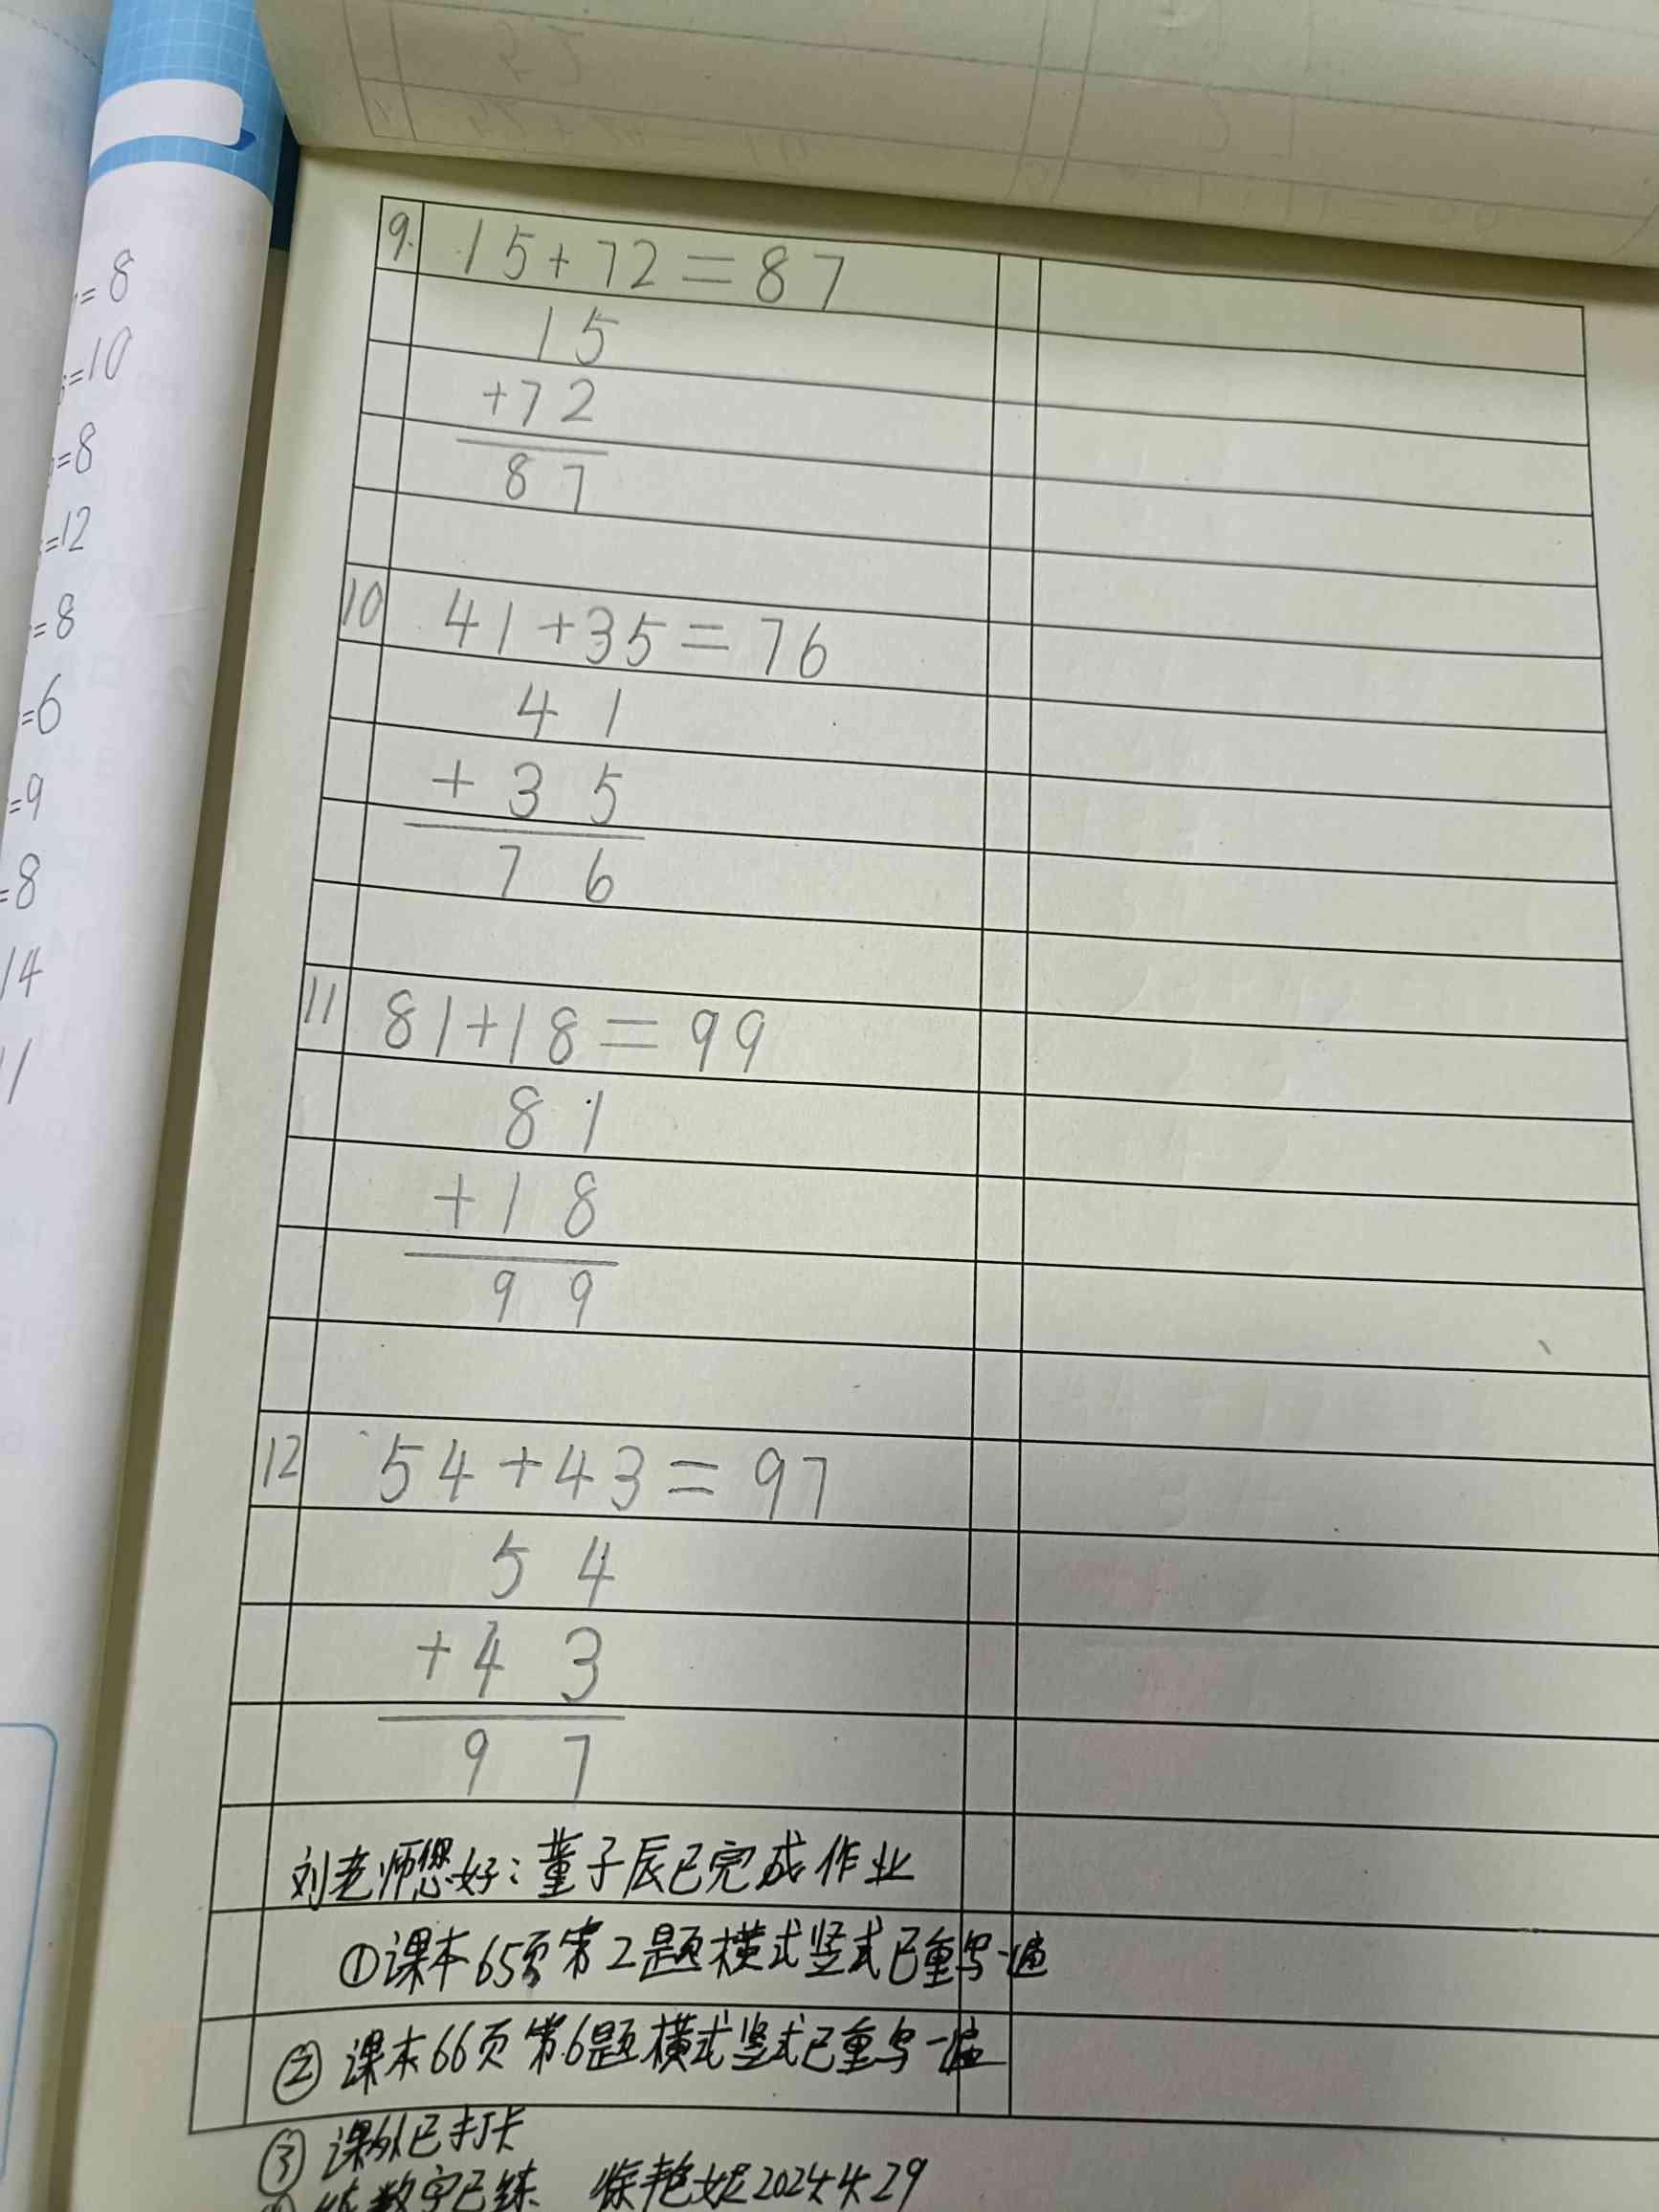 =8
=10
=8
=12
=8
=6
=9
=8
14
11
9. 15+72=87
15
+72
87
10 41+35=76
41
+35
76
11 81+18=99
81
+18
99
12 54+43=97
54
+43
97
刘老师您好：董子辰已完成作业
①课本65页第2题横式竖式已重写一遍
②课本66页第6题横式竖式已重写一遍
③课外已打卡
数字已练 2024.4.29